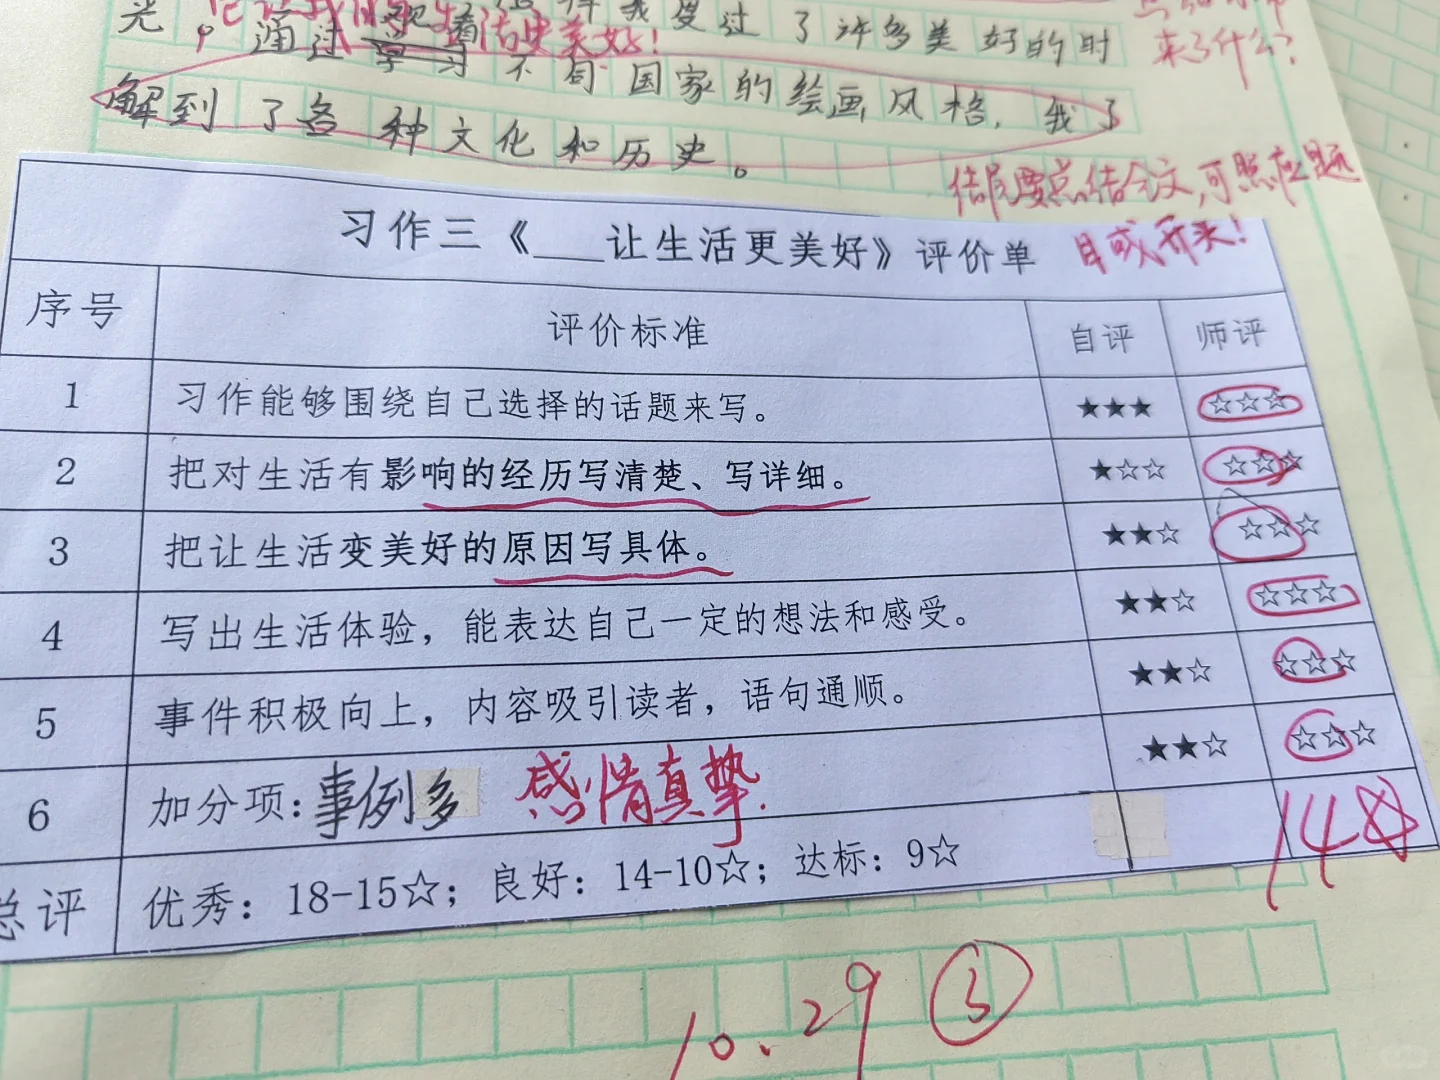 光。通过观看不同国家的绘画风格，我了
解到了各种文化和历史。
生活更美好！
来了什么？
结尾要点结全文，可照应题
目或开头！
习作三《___让生活更美好》评价单
序号 评价标准 自评 师评
1 习作能够围绕自己选择的话题来写。 ★★★ ☆☆☆
2 把对生活有影响的经历写清楚、写详细。 ★☆☆ ☆☆☆
3 把让生活变美好的原因写具体。 ★★☆ ☆☆☆
4 写出生活体验，能表达自己一定的想法和感受。 ★★☆ ☆☆☆
5 事件积极向上，内容吸引读者，语句通顺。 ★★☆ ☆☆☆
6 加分项：事例多 感情真挚. ★★☆ ☆☆☆
总评 优秀：18-15☆；良好：14-10☆；达标：9☆ 14☆
10.29 ③